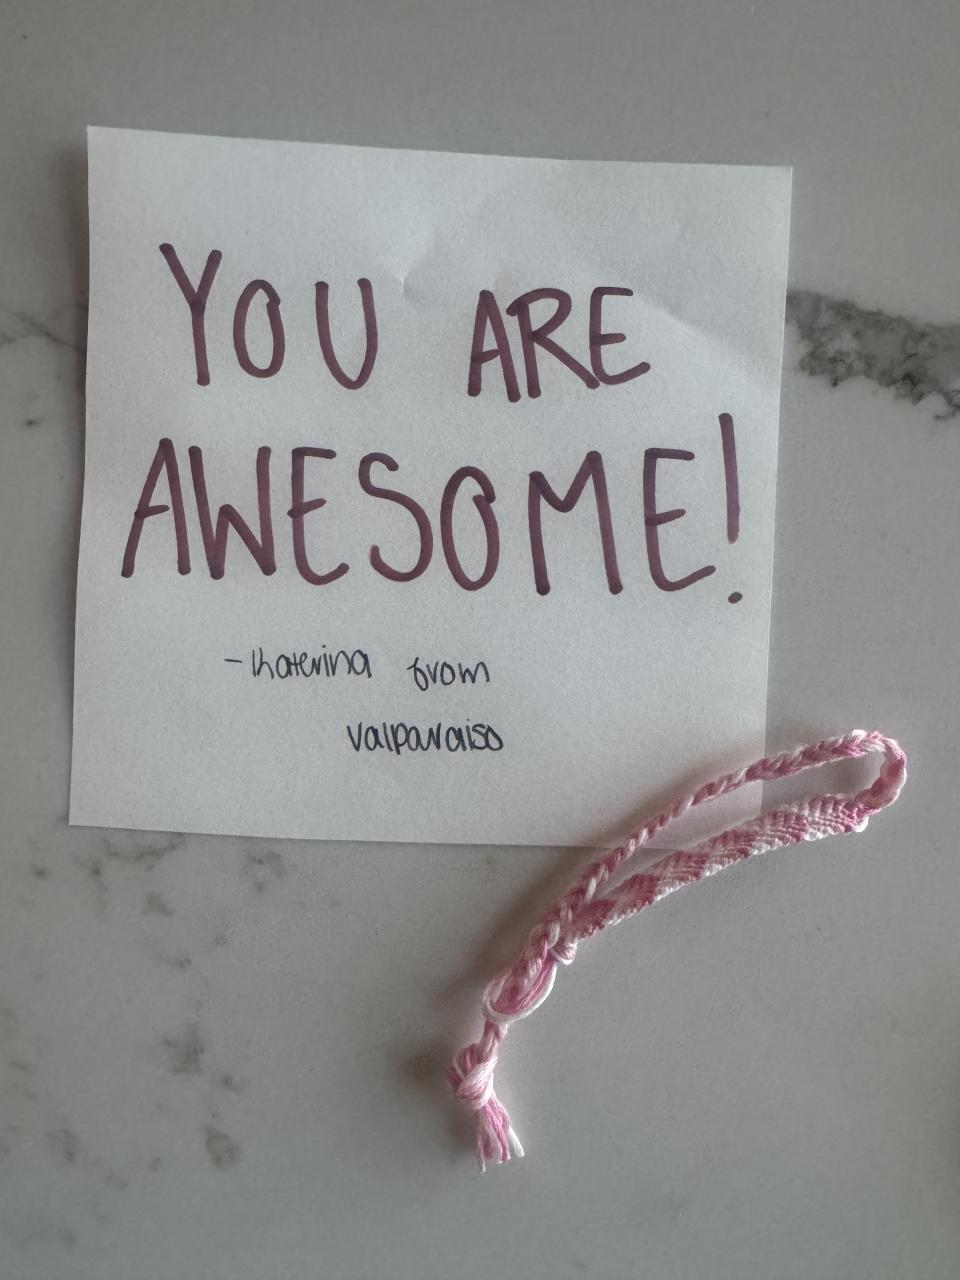 YOU ARE
AWESOME!
- Katerina from
valparaiso